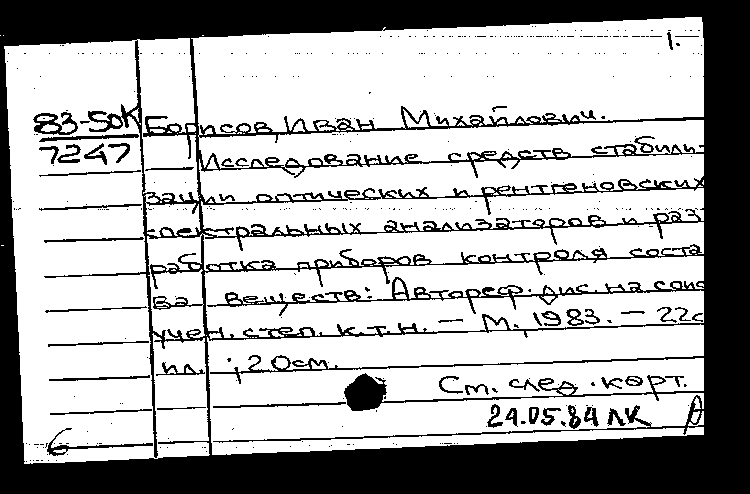 1.
83-50К Борисов, Иван Михайлович.
7247 Исследование средств стабили-
зации оптических и рентгеновских
спектральных анализаторов и раз
работка приборов контроля соста
ва веществ: Автореф. дис. на соис
учен. степ. к.т.н. – М., 1983. – 22с
ил. ; 20см.
См. след. карт.
24.05.84 ЛК
6